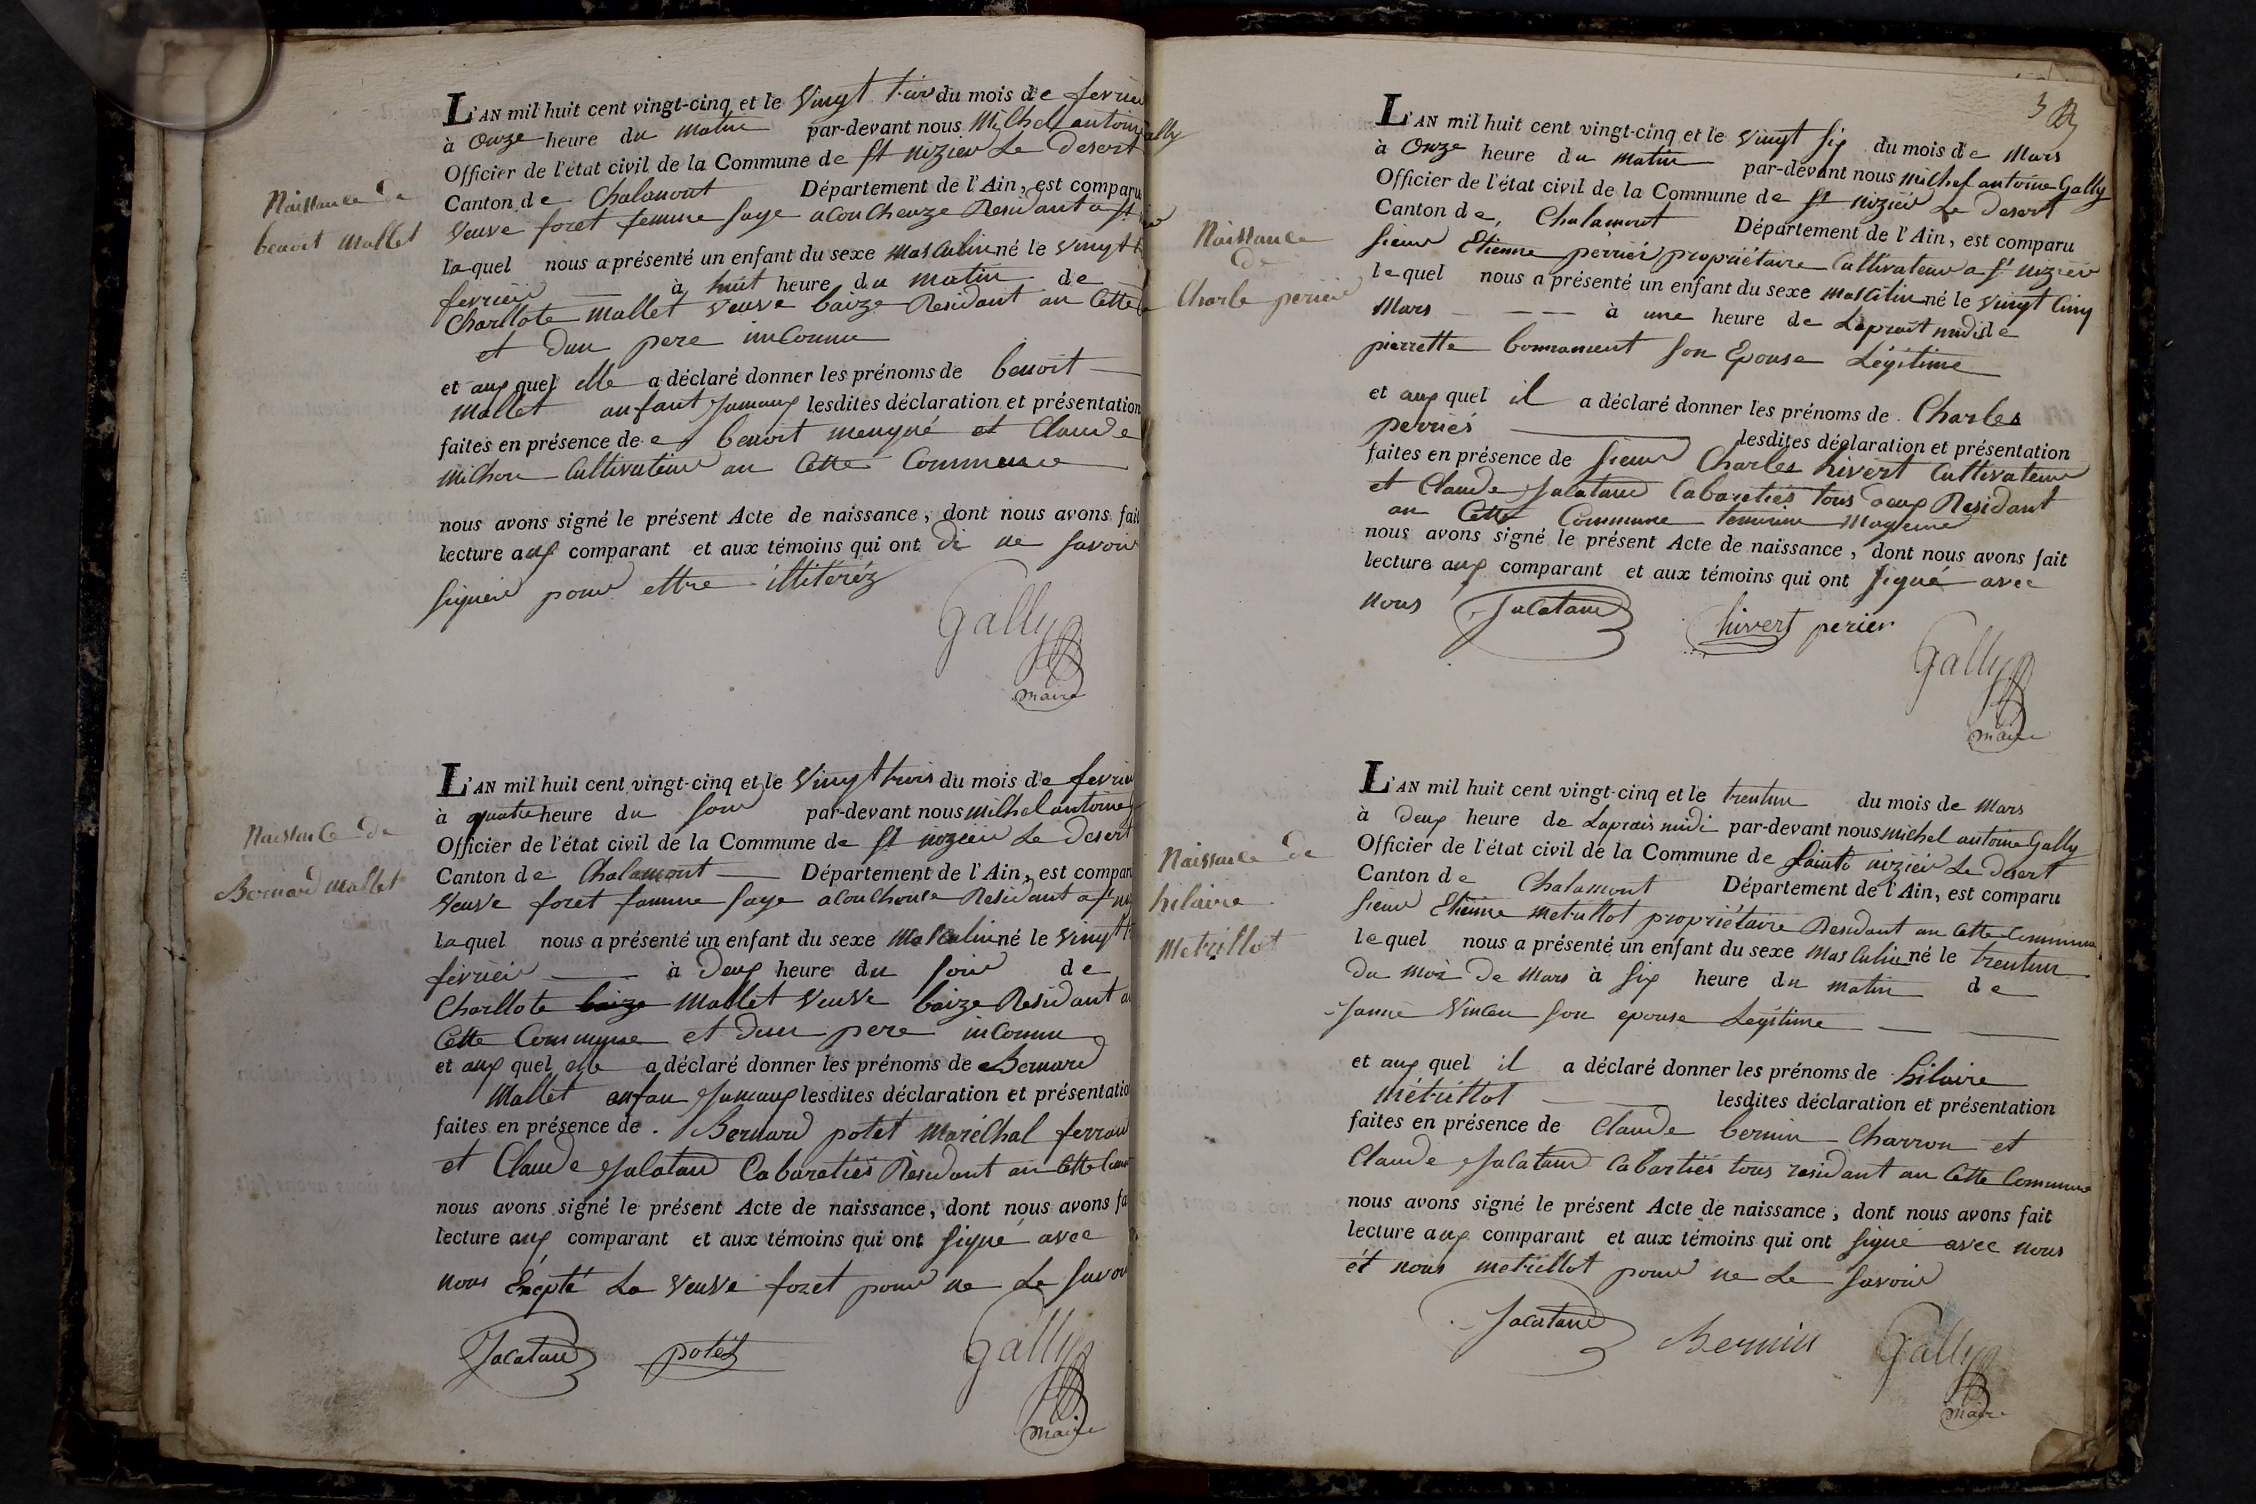 Naissance de
benoit Mallet
L'AN mil huit cent vingt-cinq et le Vingt du mois de fevrier
à Onze heure du Matin par-devant nous Michel antoine Gally
Officier de l'état civil de la Commune de St nizier Le Desert
Canton de Chalamont Département de l'Ain, est comparu
Veuve foret femme Saye acoucheuze Residant a St
laquel nous a présenté un enfant du sexe Masculin né le Vingt
fevrier à huit heure du matin de
Charllote Mallet Veuve baize Residant an Cette
et dun pere inconnu
et aux quel elle a déclaré donner les prénoms de benoit
Mallet anfant Jumaux lesdites déclaration et présentation
faites en présence de benoit et Claude
Michon Cultivateur an Cette Commune
nous avons signé le présent Acte de naissance, dont nous avons fait
lecture aux comparant et aux témoins qui ont di ne Savoir
Signer pour ettre illiteréz
Gally
maire
Naissance de
Bernard Mallet
L'AN mil huit cent vingt-cinq et le Vingt trois du mois de fevrier
à quatre heure du Soir par-devant nous Michel antoine
Officier de l'état civil de la Commune de St nizier Le Desert
Canton de Chalamont Département de l'Ain, est compar
Veuve foret famme Saye acouchouse Residant a St
laquel nous a présenté un enfant du sexe Masculin né le Vingt
fevrier à Deux heure du Soir de
Charllote baize Mallet Veuve baize Residant a
Cette Commune et dun pere inconnu
et aux quel elle a déclaré donner les prénoms de Bernard
Mallet anfan Jumaux lesdites déclaration et présentatio
faites en présence de Bernard potet Maréchal ferran
et Claude Jacatau Cabaratiés Résidant an Cette Com
nous avons signé le présent Acte de naissance, dont nous avons fa
lecture aux comparant et aux témoins qui ont Signé avec
nous Excepté La Veuve foret pour ne Le Savoir
Jacatau potet Gally
Maire
3
Naissance
de
Charle perier
L'AN mil huit cent vingt-cinq et le Vingt Six du mois de Mars
à Onze heure du Matin par-devant nous Michel antoine Gally
Officier de l'état civil de la Commune de St nizier Le Desert
Canton de Chalamont Département de l'Ain, est comparu
Sieur Etienne perrier propriétaire Cultivateur a St nizier
lequel nous a présenté un enfant du sexe Masculin né le Vingt Cinq
Mars à une heure de Laprait midi de
pierrette bonnament Son Epouse Légitime
et aux quel il a déclaré donner les prénoms de Charles
perriés lesdites déclaration et présentation
faites en présence de Sieur Charles hivert Cultivateur
et Claude Jacatau Cabaretiés tous deux Residant
an Cette Commune
nous avons signé le présent Acte de naissance, dont nous avons fait
lecture aux comparant et aux témoins qui ont Signé avec
nous Jacatau hivert perier
Gally
maire
Naissance de
hilaire
Metrillot
L'AN mil huit cent vingt-cinq et le trentun du mois de Mars
à Deux heure de Laprais midi par-devant nous Michel antoine Gally
Officier de l'état civil de la Commune de Saint nizier Le Desert
Canton de Chalamont Département de l'Ain, est comparu
Sieur Etienne Metrillot propriétaire Residant an Cette Commune
lequel nous a présenté un enfant du sexe Masculin né le trentun
du moi de Mars à Six heure du matin de
Janne Son epouse Legitime
et aux quel il a déclaré donner les prénoms de hilaire
métrillot lesdites déclaration et présentation
faites en présence de Claude bernin Charron et
Claude Jacatau Cabartiés tous residant an Cette Commune
nous avons signé le présent Acte de naissance, dont nous avons fait
lecture aux comparant et aux témoins qui ont Signé avec nous
et nous metrillot pour ne Le Savoir
Jacatau Bernin Gally
Maire